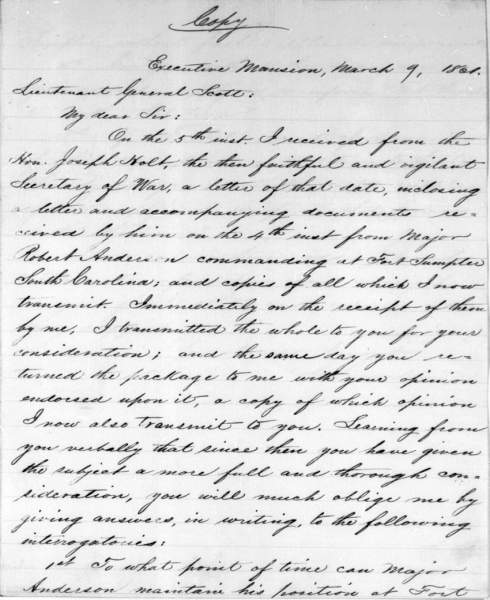 Copy
Executive Mansion, March 9, 1861.
Lieutenant General Scott:
My dear Sir:
On the 5th inst. I received from the
Hon. Joseph Holt, the then faithful and vigilant
Secretary of War, a letter of that date, inclosing
a letter and accompanying documents re-
ceived by him on the 4th inst from Major
Robert Anderson commanding at Fort Sumpter
South Carolina; and copies of all which I now
transmit. Immediately on the receipt of them
by me, I transmitted the whole to you for your
consideration; and the same day you re-
turned the package to me with your opinion
endorsed upon it, a copy of which opinion
I now also transmit to you. Learning from
you verbally that since then you have given
the subject a more full and thorough con-
sideration, you will much oblige me by
giving answers, in writing, to the following
interrogatories:
1st To what point of time can Major
Anderson maintain his position at Fort